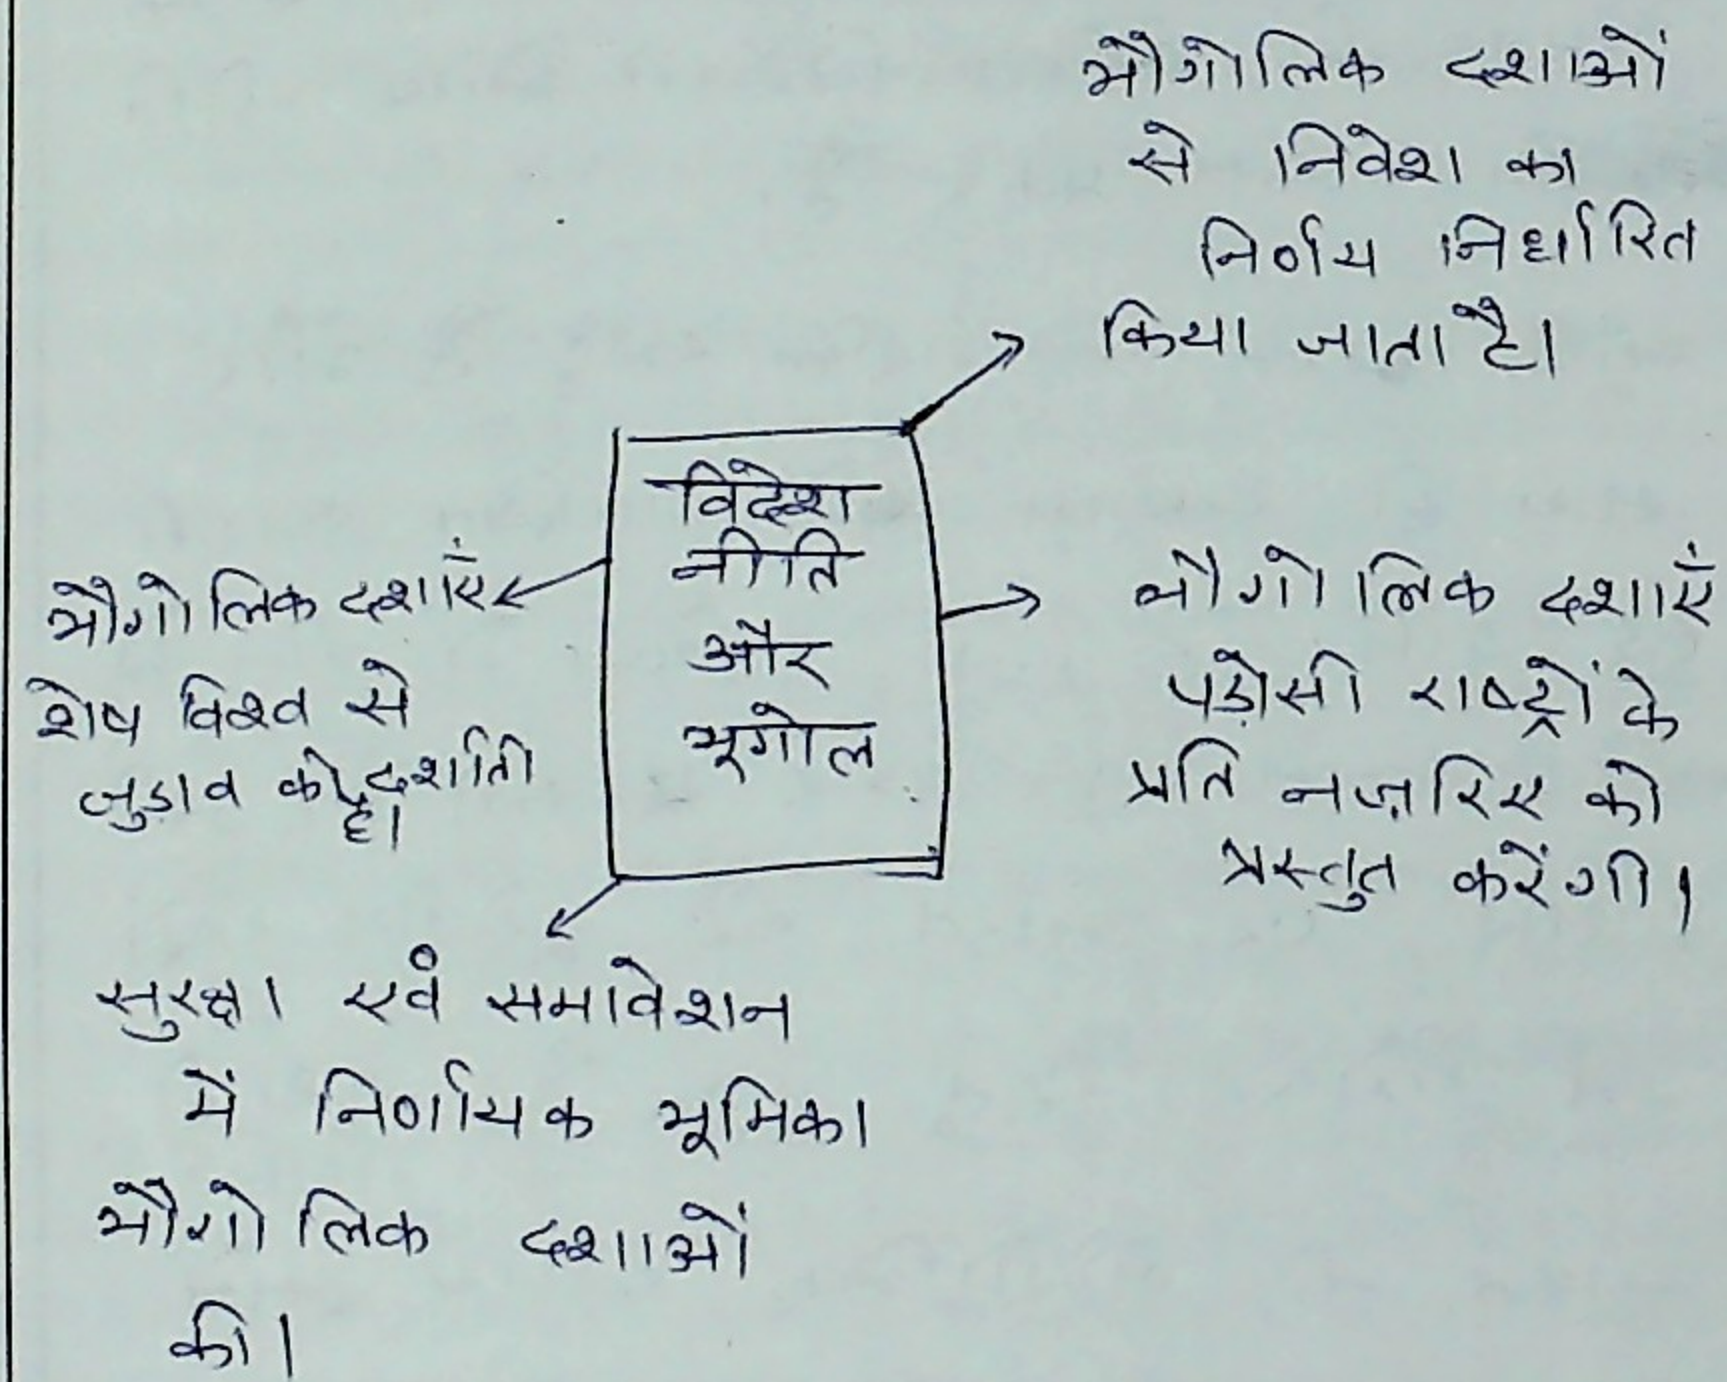 भौगोलिक दशाओं
से निवेश का
निर्णय निर्धारित
किया जाता है।
विदेश
नीति
और
भूगोल
भौगोलिक दशाएँ
शेष विश्व से
जुड़ाव को दर्शाती
है।
भौगोलिक दशाएँ
पड़ोसी राष्ट्रों के
प्रति नज़रिए को
प्रस्तुत करेंगी।
सुरक्षा एवं समावेशन
में निर्णायक भूमिका
भौगोलिक दशाओं
की।